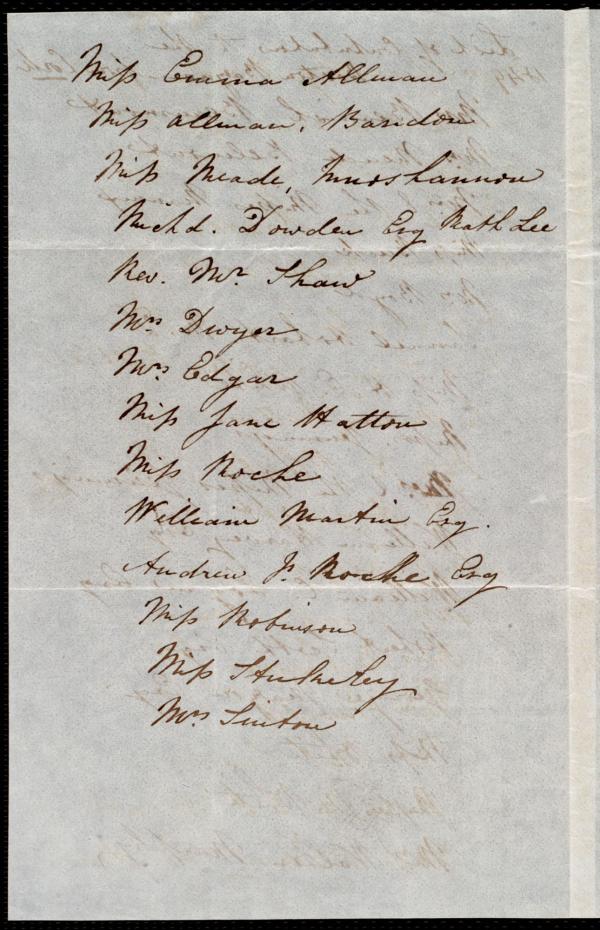 Miss Emma Allman
Miss Allman, Bandon
Miss Meade, Innoshannon
Richd. Dowden Esq Rath Lee
Rev. Mr. Shaw
Mrs Dwyer
Mrs Edgar
Miss Jane Hatton
Miss Roche
William Martin Esq.
Andrew Js. Roche Esq
Miss Robinson
Miss
Mrs Sinton